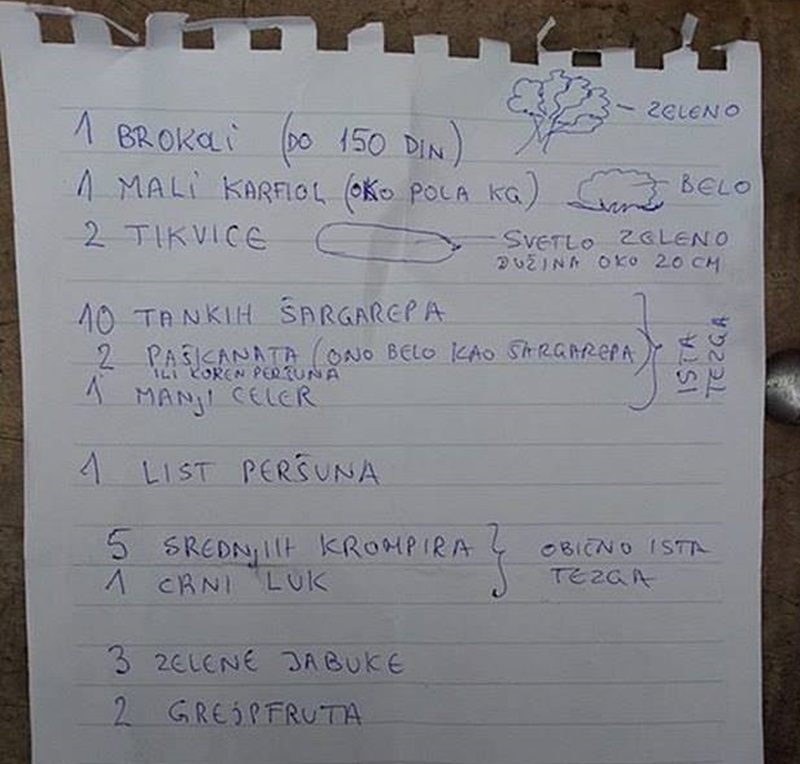 1 BROKOLI (DO 150 DIN) ZELENO
1 MALI KARFIOL (OKO POLA KG) BELO
2 TIKVICE SVETLO ZELENO
DUŽINA OKO 20 CM
10 TANKIH ŠARGAREPA
2 PAŠKANATA (ONO BELO KAO ŠARGAREPA)
ILI KOREN PERŠUNA
1 MANJI CELER
ISTA
TEZGA
1 LIST PERŠUNA
5 SREDNJIH KROMPIRA OBIČNO ISTA
1 CRNI LUK TEZGA
3 ZELENE JABUKE
2 GREJPFRUTA